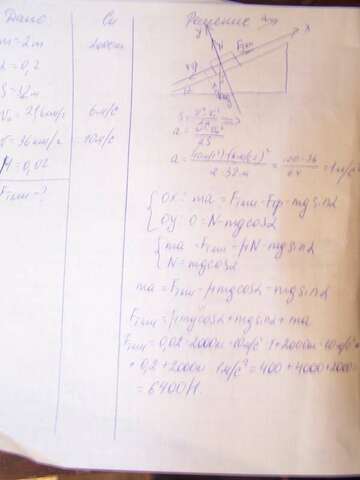 Дано
Си
Решение
m = 2т
2000кг
α = 0,2
S = 32м
V₀ = 21,6км/ч
6м/с
V = 36км/ч
10м/с
μ = 0,02
Fтяги - ?
y
x
N
mg
S = (V² - V₀²) / 2a =>
a = (V² - V₀²) / 2S
a = ((10м/с)² - (6м/с)²) / (2·32м) = (100-36) / 64 = 1м/с²
OX: ma = Fтяги - Fтр - mg sinα
OY: 0 = N - mg cosα
ma = Fтяги - μN - mg sinα
N = mg cosα
ma = Fтяги - μmg cosα - mg sinα
Fтяги = μmg cosα + mg sinα + ma
Fтяги = 0,02·2000кг·10м/с²·1+2000кг·10м/с²·
+ 0,2 + 2000кг · 1м/с² = 400 + 4000 + 2000 =
= 6400Н.